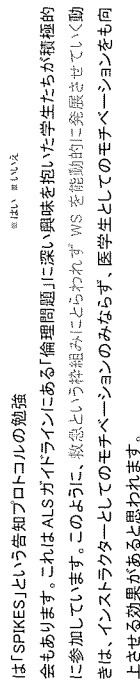 は「SPIKES」という告知プロトコルの勉強
※はい ※いいえ
会もあります。これは ALS ガイドラインにある「倫理問題」に深い興味を抱いた学生たちが積極的
に参加しています。このように、救急という枠組みにとらわれず WS を能動的に発展させていく動
きは、インストラクターとしてのモチベーションのみならず、医学生としてのモチベーションをも向
上させる効果があると思われます。